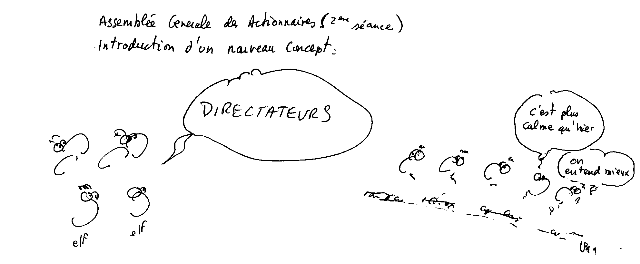 Assemblée Generale des Actionnaires (2eme séance)
Introduction d'un nouveau concept:
DIRECTATEURS
c'est plus
calme qu'hier
on
entend mieux
elf
elf